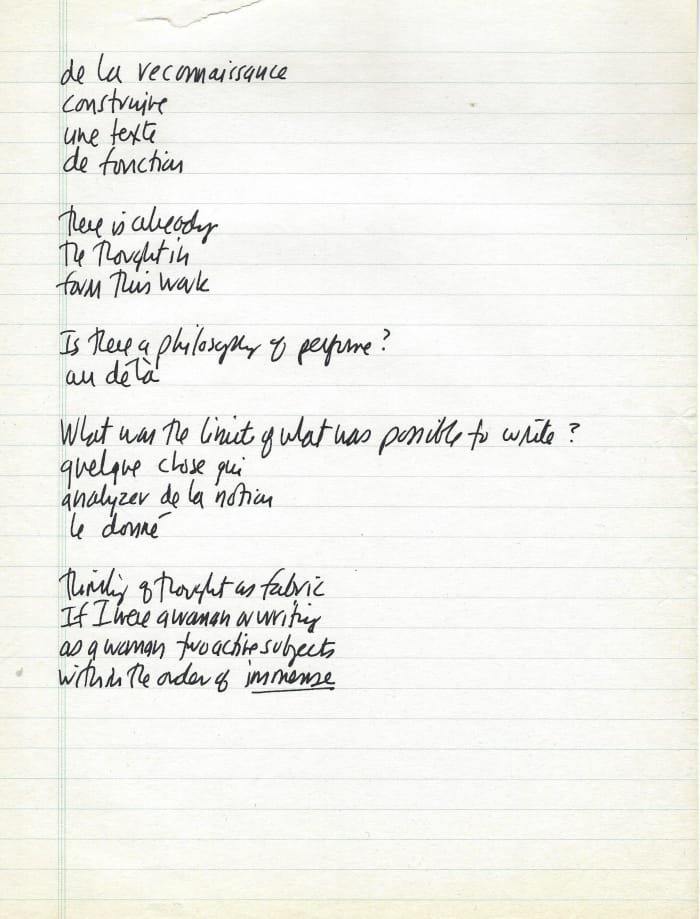 de la reconnaissance
construire
une texte
de fonction
There is already
The Thought in
form This work
Is there a philosophy of perfume?
au délà
What was The limit of what was possible to write?
quelque chose qui
analyzer de la notion
le donné
Thinking of thought as fabric
If I were a woman or writing
as a woman two active subjects
within The order of immense